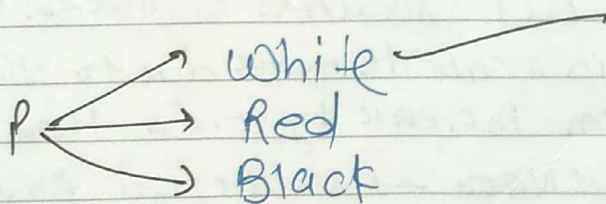 White
P Red
Black